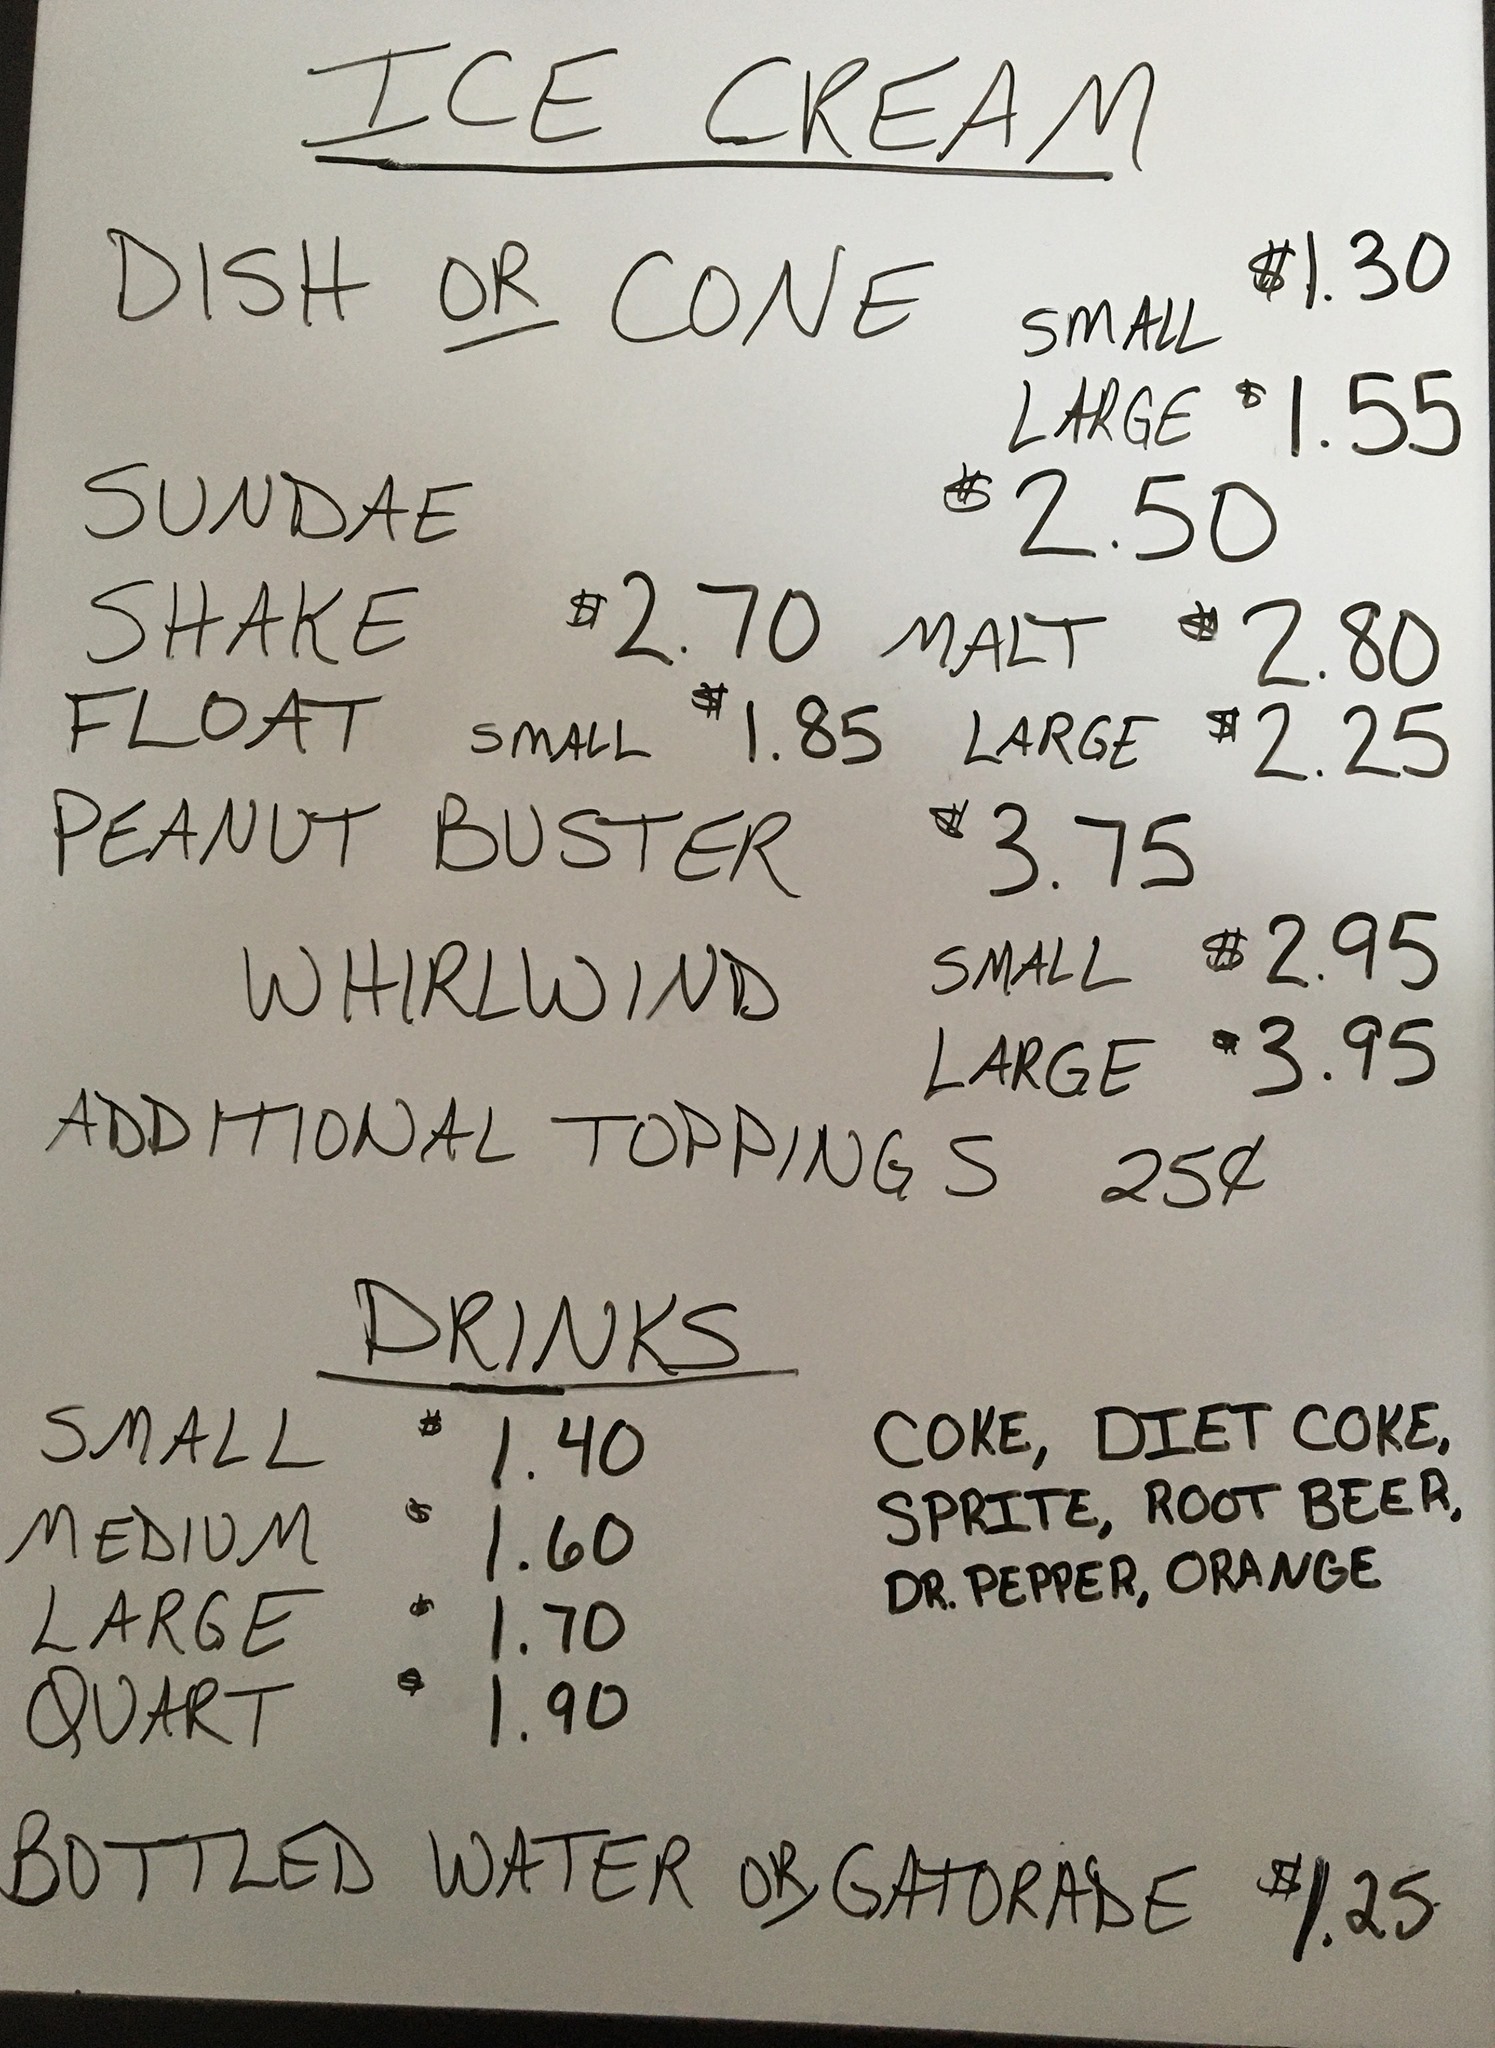 ICE CREAM
DISH OR CONE SMALL $1.30
LARGE $1.55
SUNDAE $2.50
SHAKE $2.70 MALT $2.80
FLOAT SMALL $1.85 LARGE $2.25
PEANUT BUSTER $3.75
WHIRLWIND SMALL $2.95
LARGE $3.95
ADDITIONAL TOPPINGS 25¢
DRINKS
SMALL $1.40
MEDIUM $1.60
LARGE $1.70
QUART $1.90
COKE, DIET COKE,
SPRITE, ROOT BEER,
DR. PEPPER, ORANGE
BOTTLED WATER OR GATORADE $1.25